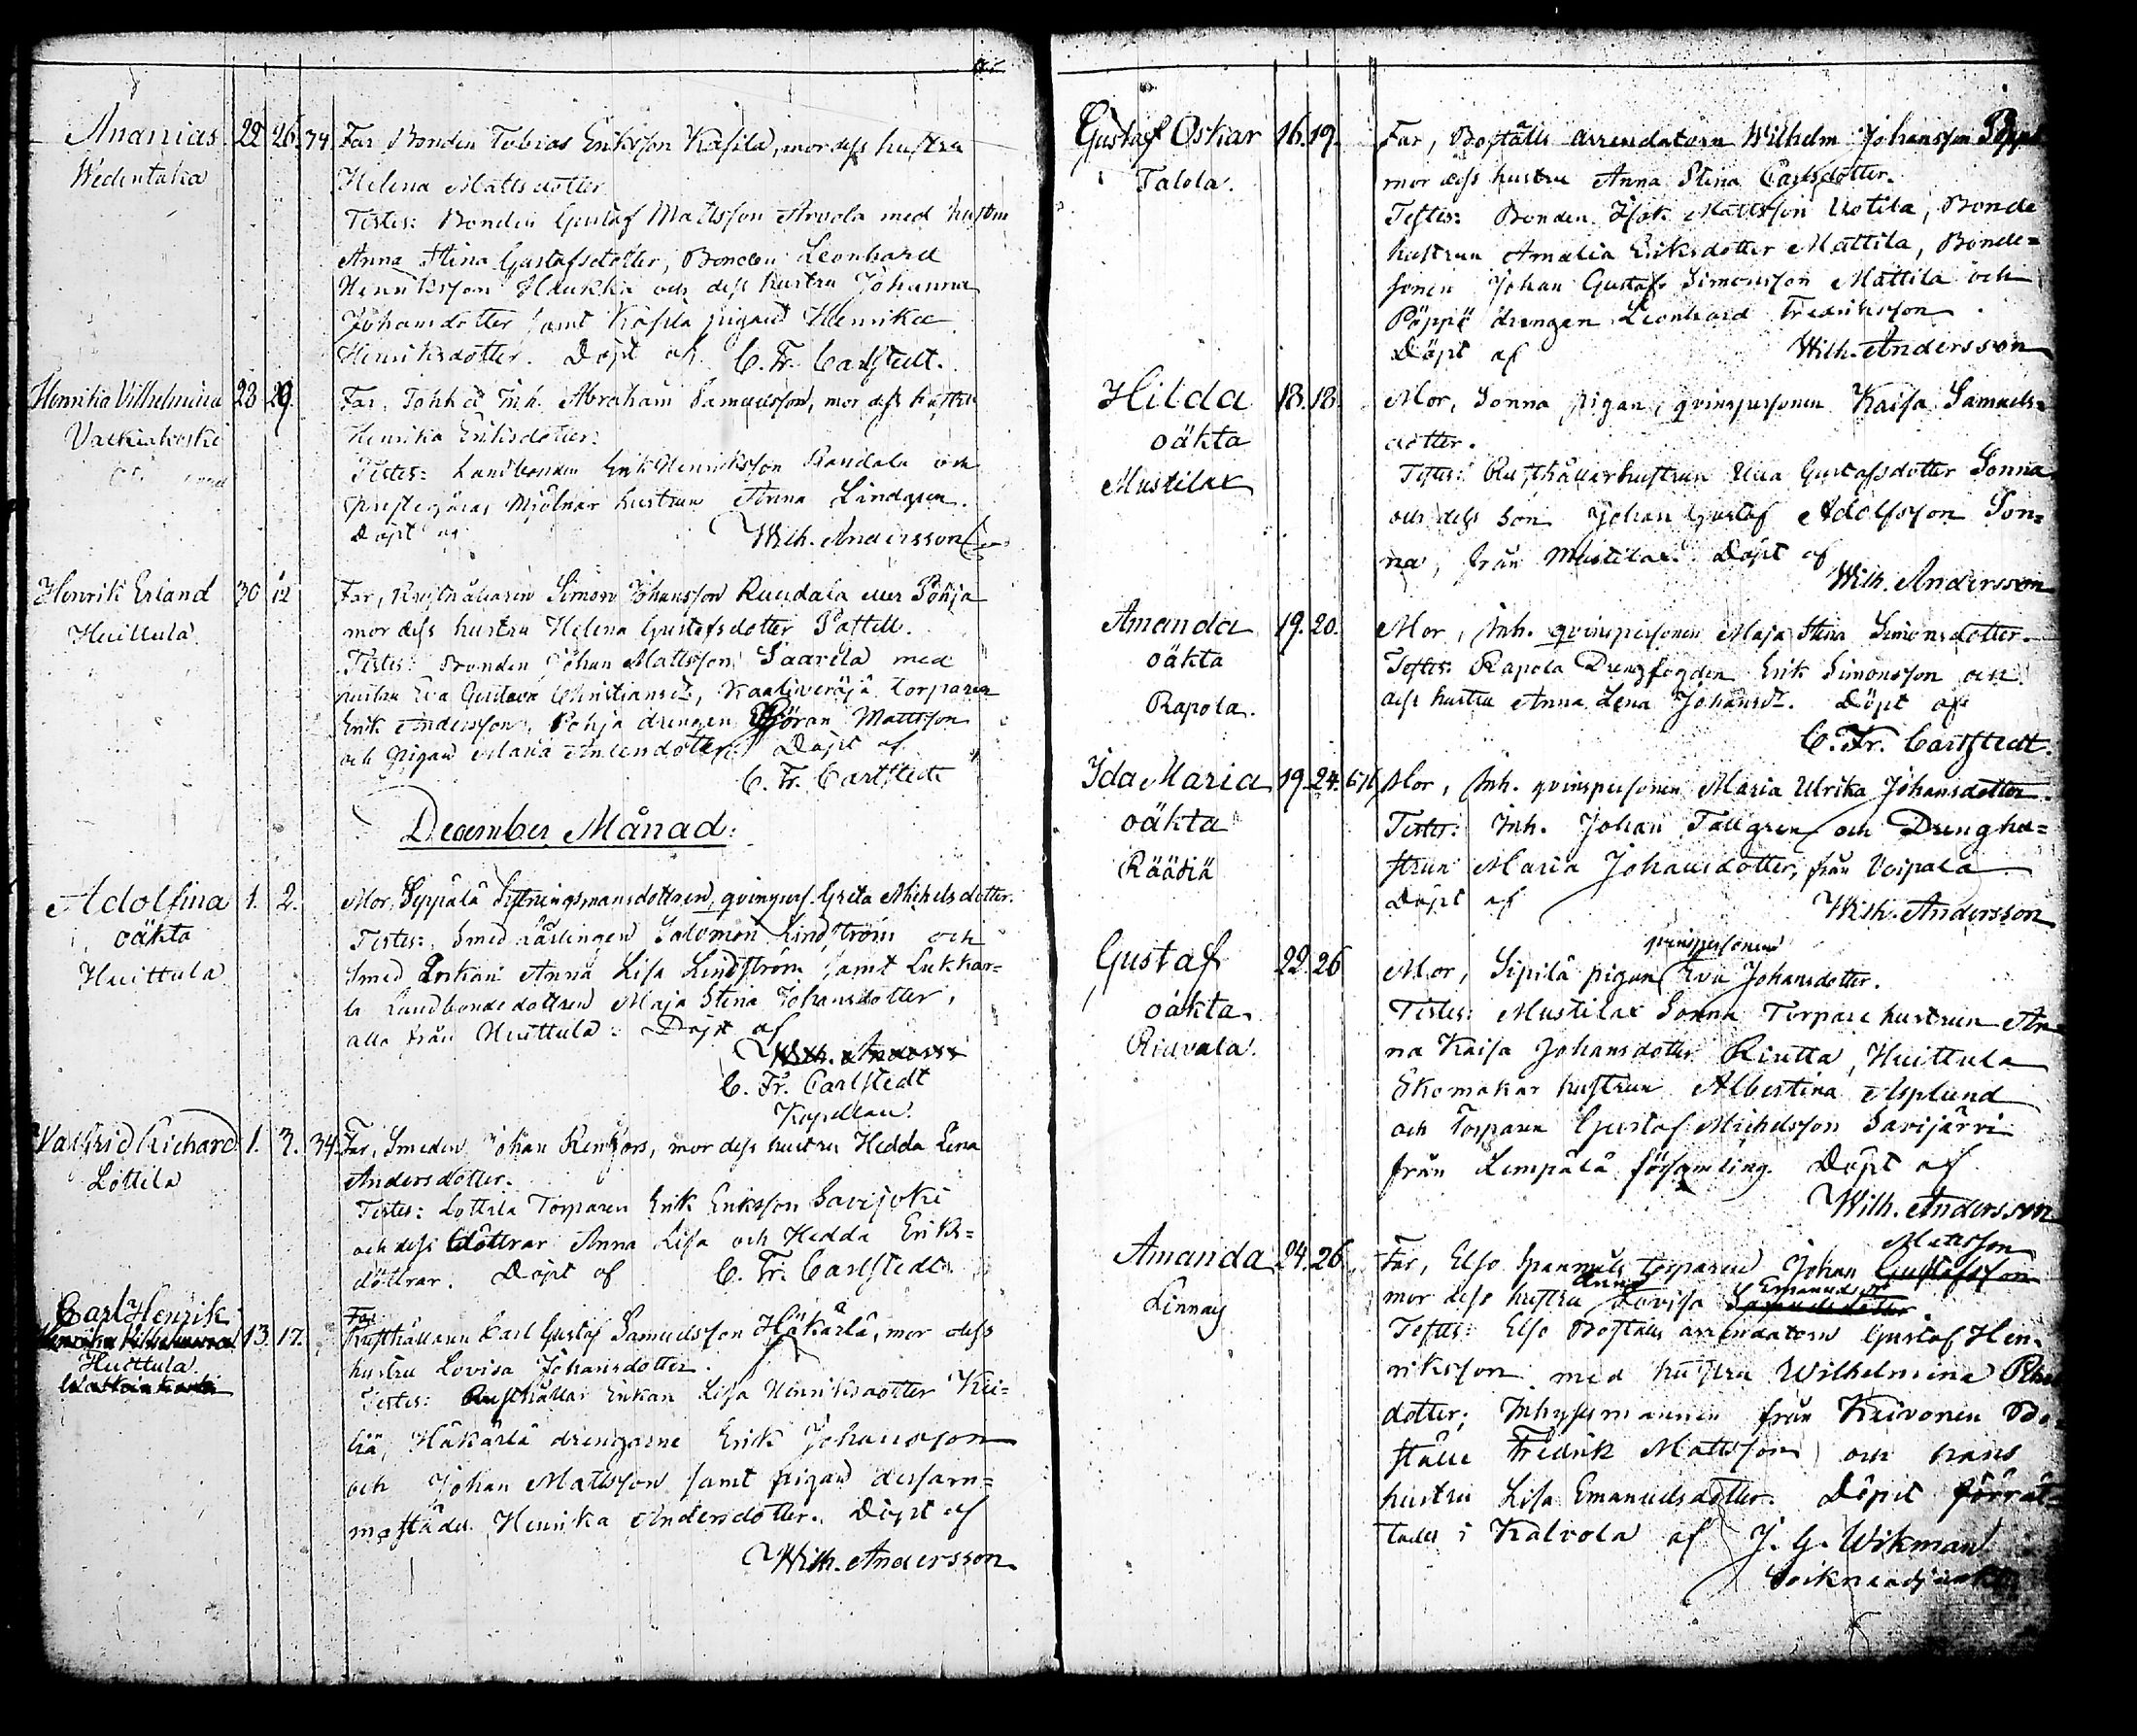 Ananias 22 26. 34 Far Bonden Tobias Eriksson Kasila, mor dess hustru
Wedentaka Helena Mattsdotter
Testes: Bonden Gustaf Mattsson Arvola med hustru
Anna Stina Gustafsdotter, Bonden Leonhard
Henriksson Haukka och dess hustru Johanna
Johansdotter samt Kasila pigan Henrika
Henriksdotter. Döpt af C. Fr. Carlstedt.
Henrika Vilhelmina 23 29. Far, Inh. Abraham Samuelsson, mor dess hustru
Valkiakoski Henrika Eriksdotter.
Testes: Landbonden Erik Henriksson och
Mjölnar hustrun Anna Lindgren.
Döpt af Wilh. Andersson
Henrik Erland 30 12 Far, Rusthållaren Simon Johansson Ruudala eller Pohja
Huittula mor dess hustru Helena Gustafsdotter
Testes: Bonden Johan Mattsson Saarela med
hustru Eva Gustava Christiansdr, torparen
Erik Andersson, Pohja drengen Göran Mattsson
och pigan Maria Döpt af
C. Fr. Carlstedt
December Månad:
Adolfina 1. 2. Mor, Seppälä qvinspers. Greta Michelsdotter.
oäkta Testes: Smed lärlingen Salomon Lindström och
Huittula Smed Enkan Anna Lisa Lindström samt Lukkar-
la Landbondedottren Maja Stina Johansdotter,
alla från Huittula. Döpt af
Wilh. Anderss
C. Fr. Carlstedt
Kapellan.
Valfrid Richard 1. 3. 34. Far, Smeden Johan Renfors, mor dess hustru Hedda Lena
Lottila Andersdotter.
Testes: Lottila Torparen Erik Eriksson Savijoki
och dess döttrar Anna Lisa och Hedda Eriks-
döttrar. Döpt af C. Fr. Carlstedt
Carl Henrik
Henrika Vilhelmina 13. 17. Far Rusthållaren Carl Gustaf Samuelsson Häkärlä, mor dess
Huittula hustru Lovisa Johansdotter.
Valkiakoski Testes: Rusthållar Enkan Lisa Henriksdotter
Häkärlä drengarne Erik Johansson
och Johan Mattsson samt pigan dersam-
mastädes Henrika Andersdotter. Döpt af
Wilh. Andersson
Gustaf Oskar 16. 19. Far, Boställs arrendatorn Wilhelm Johansson
Talola. mor dess hustru Anna Stina Carlsdotter.
Testes: Bonden Isak Mattsson Uotila, Bonde
hustrun Amalia Eriksdotter Mattila, Bonde-
sonen Johan Gustaf Simonsson Mattila och
Pöppö drengen Leonhard Fredriksson.
Döpt af Wilh. Andersson
Hilda 18. 18. Mor, Sonna pigan, qvinspersonen Kaisa Samuels-
oäkta dotter.
Mustilax Testes: Rusthållarhustrun Ulla Gustafsdotter Sonna
och dess son Johan Gustaf Adolfsson Son-
na, från Mustilax. Döpt af
Wilh. Andersson
Amanda 19. 20. Mor, Inh. qvinspersonen Maja Stina Simonsdotter.
oäkta Testes: Rapola Drengfogden Erik Simonsson och
Rapola. dess hustru Anna Lena Johansdr. Döpt af
C. Fr. Carlstedt.
Ida Maria 19. 24. Mor, Inh. qvinspersonen Maria Ulrika Johansdotter.
oäkta Testes: Inh. Johan Tallgren och Drenghu-
Räädiä strun Maria Johansdotter, från Voipala
Döpt af Wilh. Andersson
qvinspersonen
Gustaf 22. 26 Mor, Sipilä pigan Eva Johansdotter.
oäkta Testes: Mustilax Sonna Torpare hustrun An-
Ridvala. na Kaisa Johansdotter Riutta, Huittula
Skomakar hustrun Albertina Asplund
och Torparen Gustaf Michelsson Savijärvi
från Lempälä församling. Döpt af
Wilh. Andersson
Mattsson
Amanda 24. 26. Far, Elso torparen Johan Gustafsson
Linnas mor dess hustru Anna Lovisa Emanuelsdr Samuelsdotter.
Testes: Elso Boställs arrendatorn Gustaf Hen-
riksson med hustru Wilhelmina
dotter; Inhysesmannen från Keivonen Bo-
ställe Fredrik Mattsson och hans
hustru Lisa Emanuelsdotter. Döpet förrät-
tades i Kalvola af J. G. Wikman
Sockneadjunkt